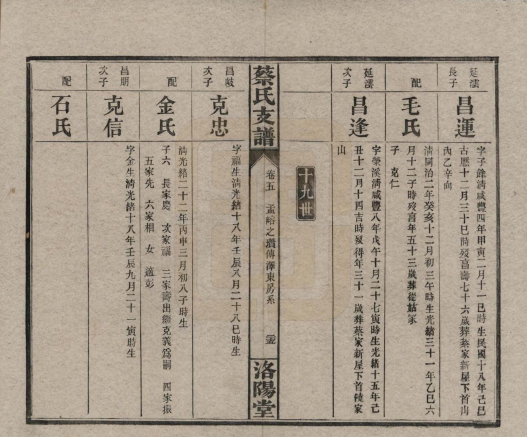 延澐長子
昌運
字子餘淸咸豐四年甲寅二月十一巳時生民國十八年己巳
古曆十二月三十巳時歿享壽七十六歲葬蔡家新屋下首山
內乙辛向
配
毛氏
淸同治二年癸亥十二月初三午時生光緖三十一年乙巳六
月十二子時歿享年五十三歲葬從姑冢
子 克仁
延澐次子
昌逢
字榮溪淸咸豐八年戊午十月二十七寅時生光緖十五年己
丑十二月十四吉時歿得年三十一歲葬蔡家新屋下首饒家
山
十九世
蔡氏支譜
卷五 孟㟷之瓚傳澤東房系 三五
洛陽堂
昌 次子
克忠
字福生淸光緖十八年壬辰八月二十八巳時生
配
金氏
淸光緖二十二年丙申三月初八子時生
子六 長家慶 次家福 三家壽出繼克義爲嗣 四家振
五家先 六家相 女 適彭
昌期次子
克信
字金生淸光緖十八年壬辰九月二十一寅時生
配
石氏